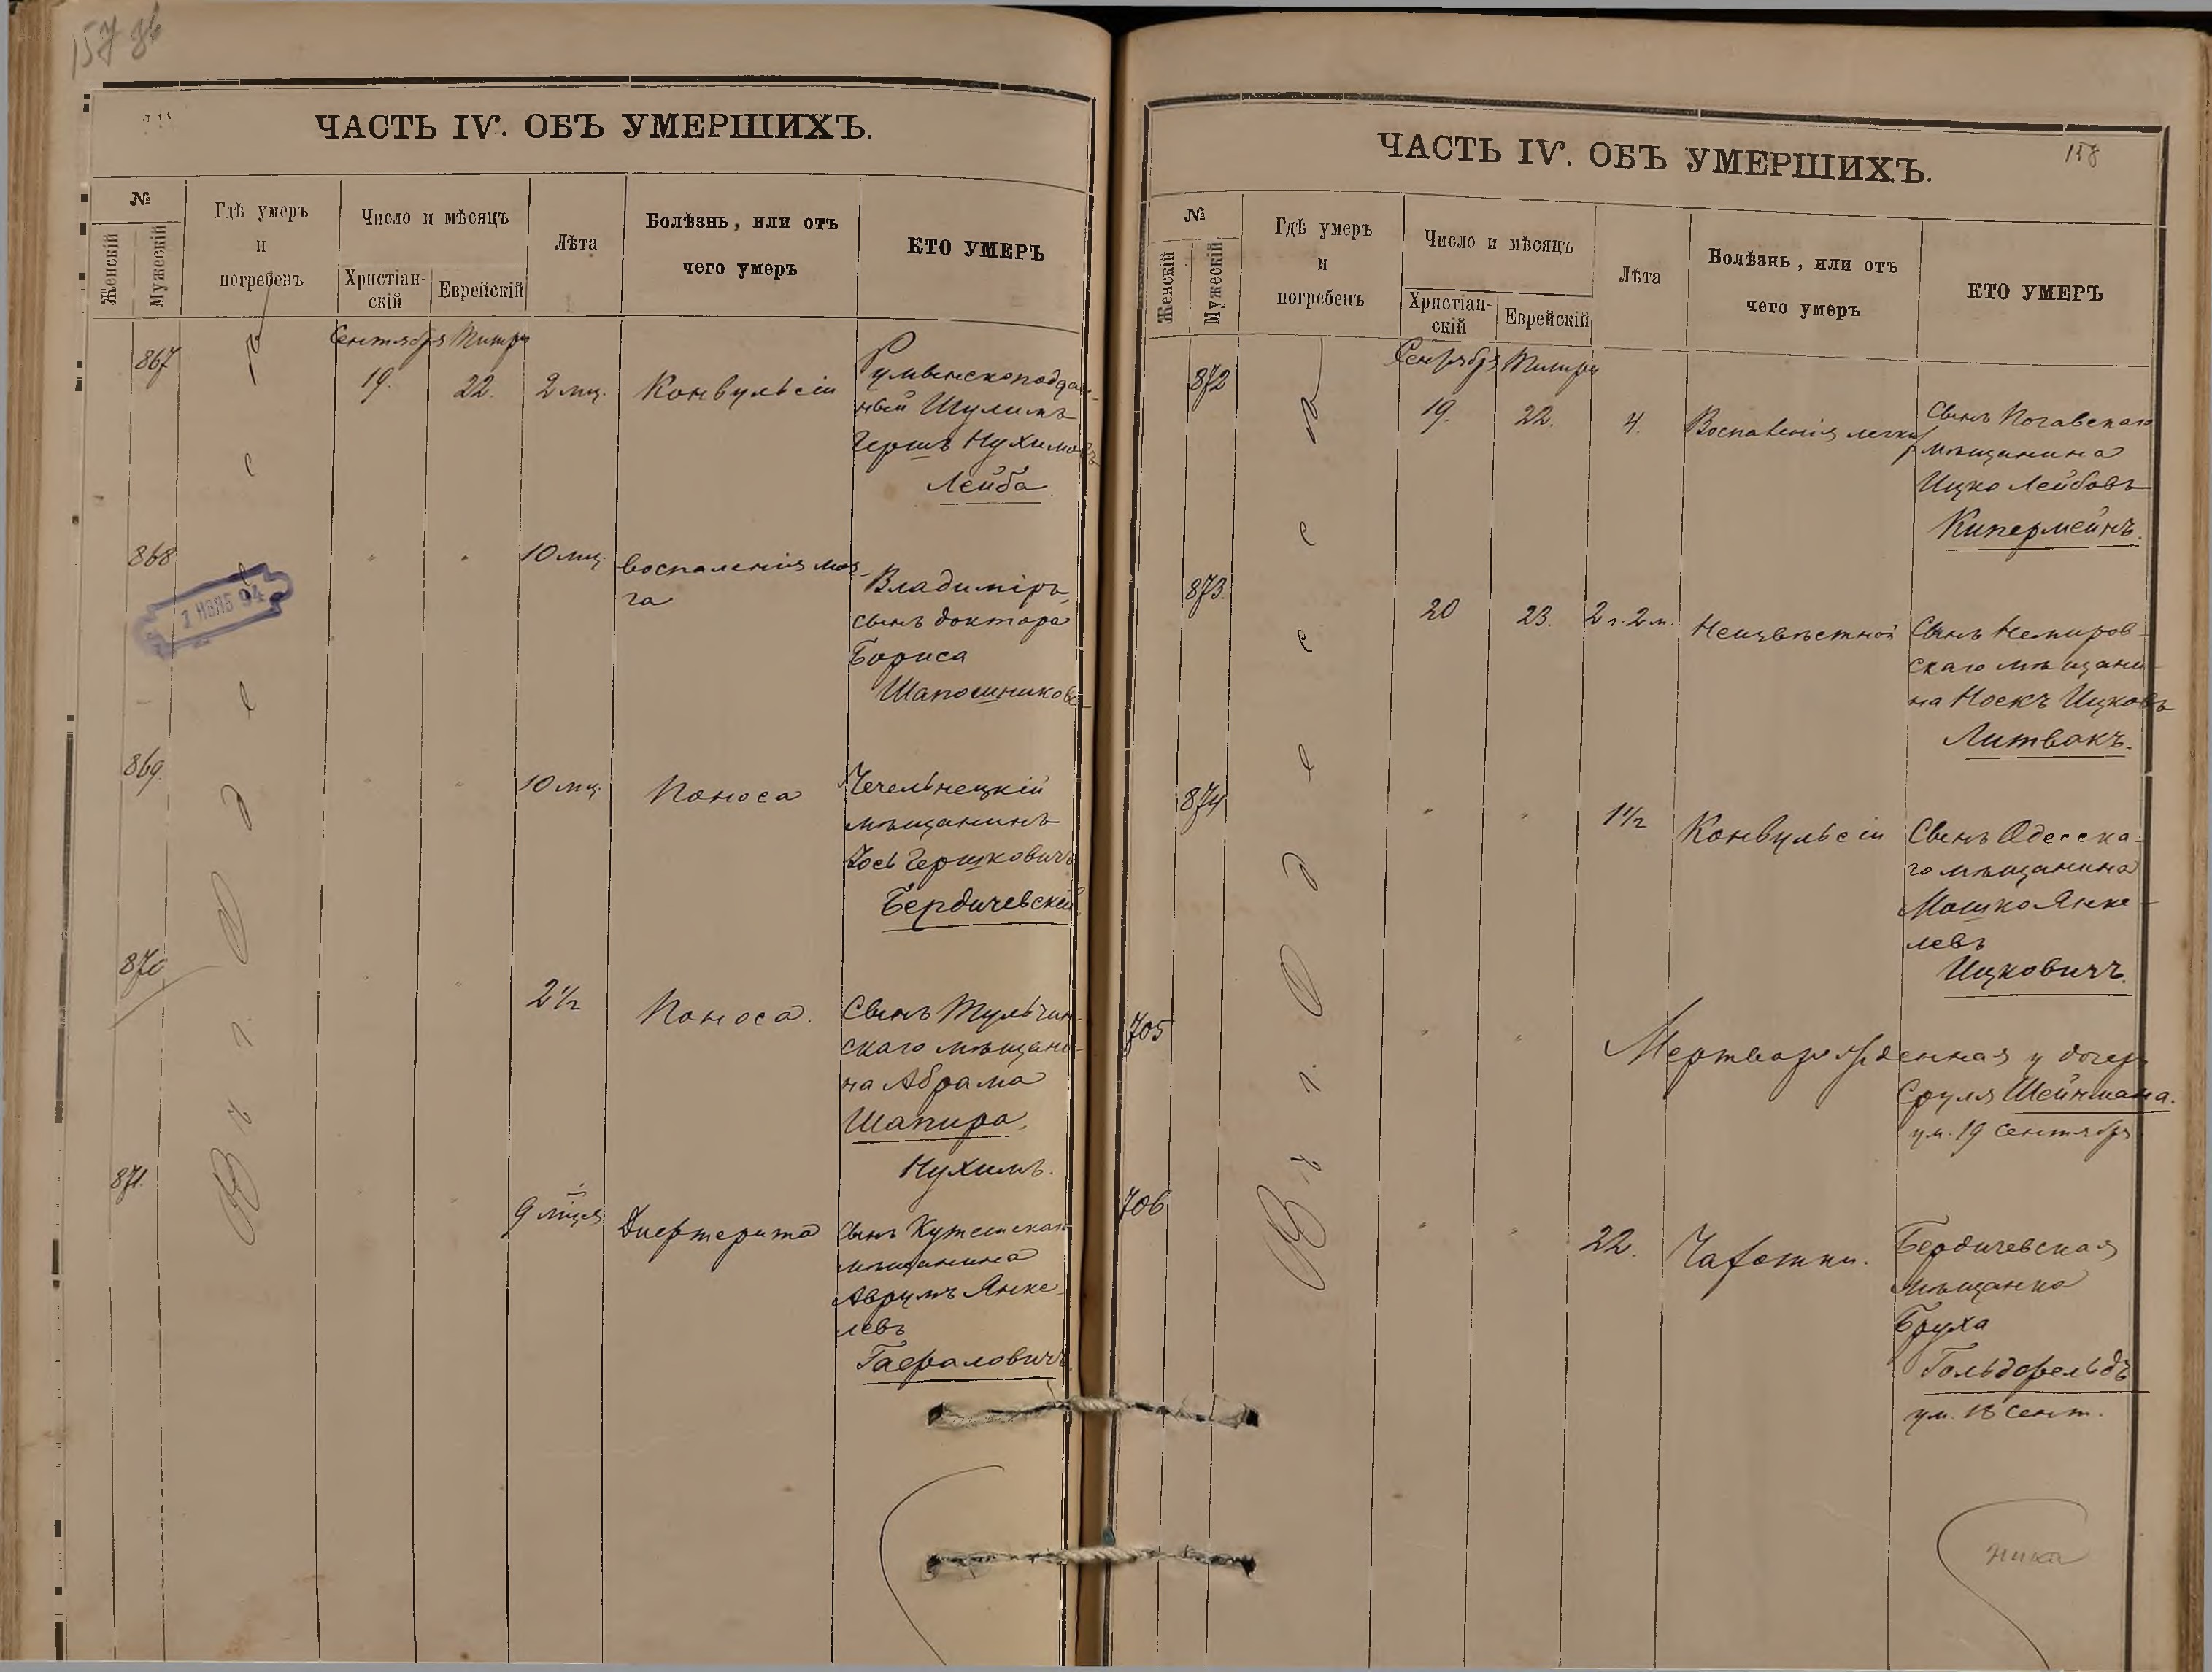 157 об
ЧАСТЬ IV. ОБЪ УМЕРШИХЪ.
№
Женскій
Мужескій
Гдѣ умеръ
и
погребенъ
Число и мѣсяцъ
Христіан-
скій
Еврейскій
Лѣта
Болѣзнь, или отъ
чего умеръ
КТО УМЕРЪ
Въ г. Одессѣ
Сентября Тишри
867
19.
22.
2 мц.
Конвульсіи
Румынскоподдан-
ный Шулимъ
Гершъ Нухимовъ
Лейба
868
"
"
10 мц.
Воспаленія моз-
га
Владиміръ,
сынъ доктора
Бориса
Шапошникова
7 НОЯБ 94
869.
"
"
10 мц.
Поноса
Чечельнецкій
мѣщанинъ
Іось Гершковичъ
Бердичевскій
870
"
"
2 ½
Поноса.
Сынъ Тульчин-
скаго мѣщани-
на Абрама
Шапира,
Нухимъ.
871.
"
"
9 мцев
Дифтерита
Сынъ
мѣщанина
Аврумъ Янке-
левъ
Гафаловичъ
158
ЧАСТЬ IV. ОБЪ УМЕРШИХЪ.
№
Женскій
Мужескій
Гдѣ умеръ
и
погребенъ
Число и мѣсяцъ
Христіан-
скій
Еврейскій
Лѣта
Болѣзнь, или отъ
чего умеръ
КТО УМЕРЪ
Въ г. Одессѣ
Сентября Тишри
872
19.
22.
4.
Воспаленія легких
Сынъ
мѣщанина
Ицко Лейбовъ
Кипермейнъ.
873.
20
23.
2 г. 2 м.
Неизвѣстной
Сынъ Немиров-
скаго мѣщани-
на Ноекъ Ицковъ
Литвакъ.
874
"
"
1½
Конвульсіи
Сынъ Одесска-
го мѣщанина
Мошко Янке-
левъ
Ицковичъ.
705
"
"
Мертворожденная у дочери
Сруля Шейнмана.
ум. 19 Сентября
706
"
"
22.
Чахотки.
Бердичевская
мѣщанка
Бруха
Гольдфельдъ
ум. 18 Сент.